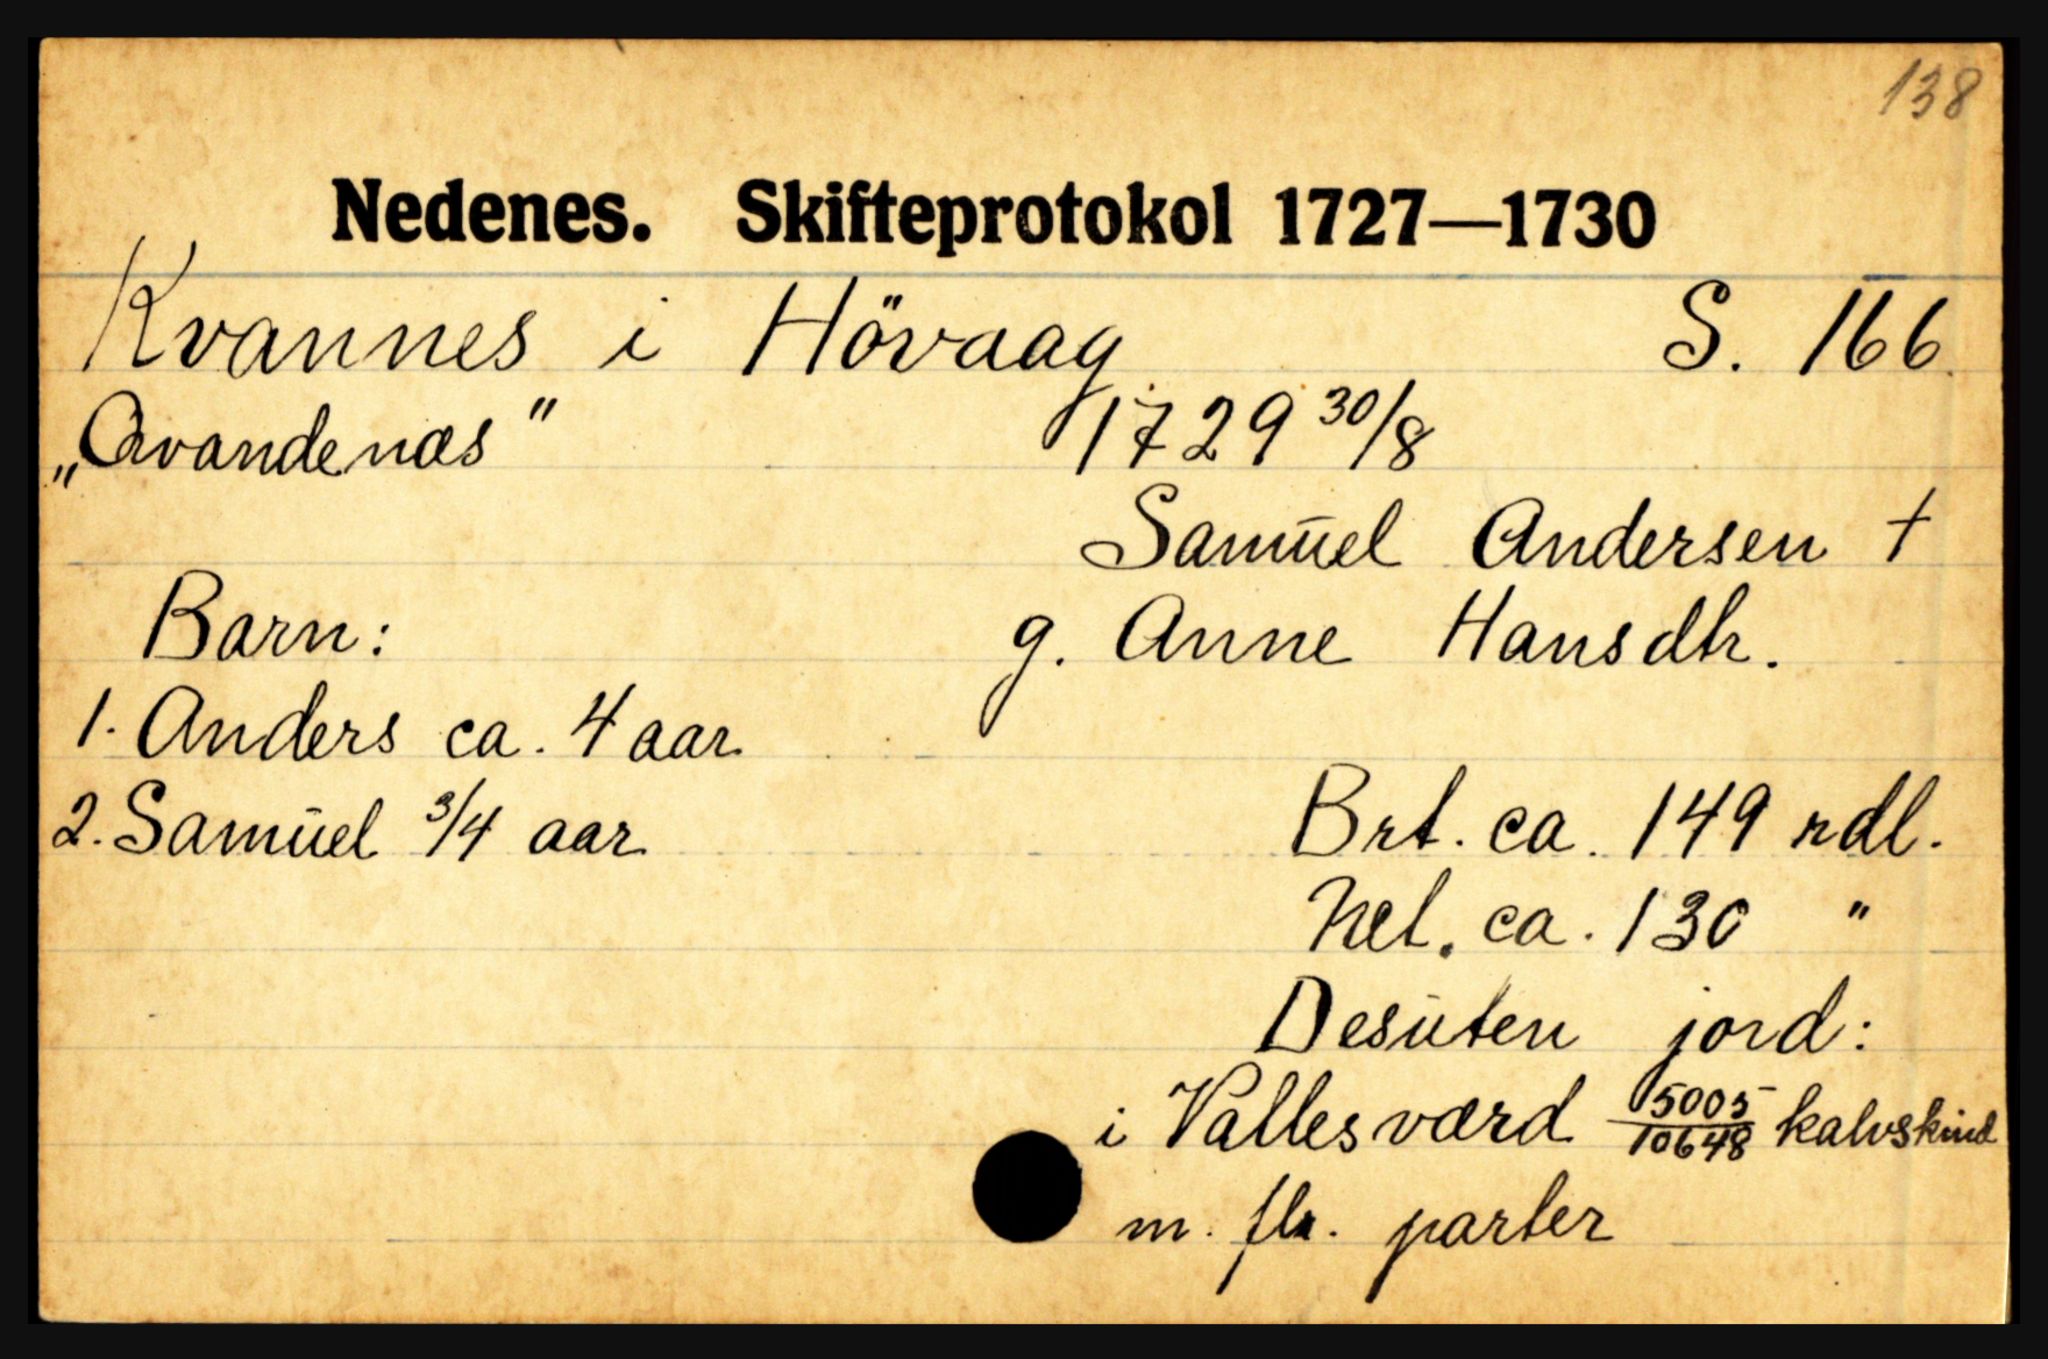 138
Nedenes. Skifteprotokol 1727—1730
Kvannes i Hövaag S. 166.
„Qvandenæs" 1729 30/8
Samuel Andersen †
Barn: g. Anne Hansdtr.
1. Anders ca. 4 aar
2. Samuel 3/4 aar Brt. ca. 149 rdl.
Net. ca. 130 "
Desuten jord:
i Vallesværd 5005/10648 kalvskind
m. flr. parter